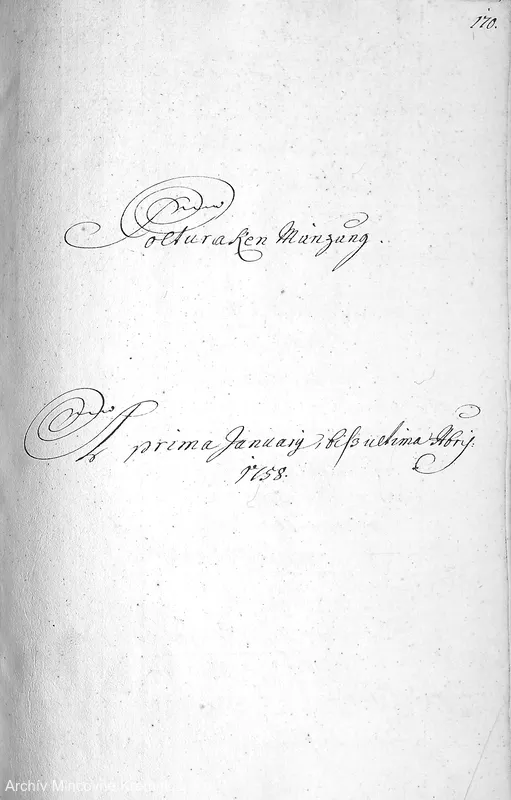 170.
Polturaken Münzung.
A prima Januarij, biß ultima Xbris.
1758.
Archív Mincovne Kremnica